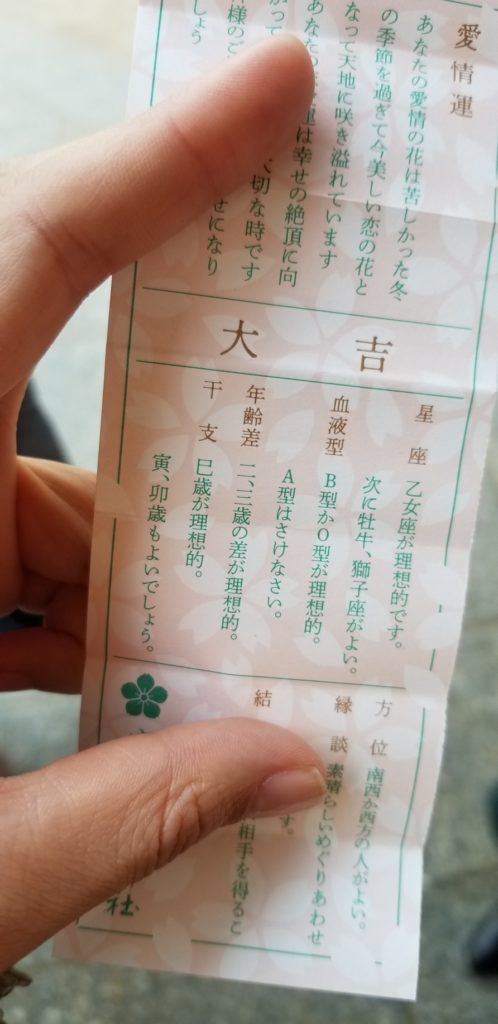 愛情運
あなたの愛情の花は苦しかった冬
の季節を過ぎて今美しい恋の花と
なって天地に咲き溢れています
あなたの 運は幸せの絶頂に向
かって 大切な時です
様のご せになり
しょう
大吉
星座 乙女座が理想的です。
次に牡牛、獅子座がよい。
血液型 B型かO型が理想的。
A型はさけなさい。
年齢差 二、三歳の差が理想的。
干支 巳歳が理想的。
寅、卯歳もよいでしょう。
方位 南西か西方の人がよい。
縁談 素晴らしいめぐりあわせ
す。
結 相手を得るこ
社